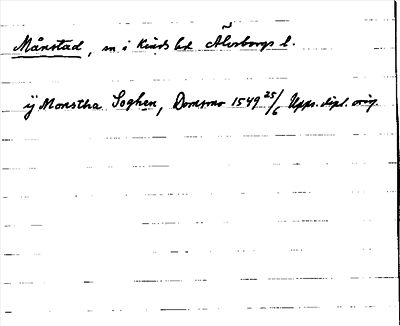 Månstad, sn i Kinds hd Älvsborgs l.
ÿ Monstha Soghen, Domsmo 1549 25/6 Upps. dipl. orig.